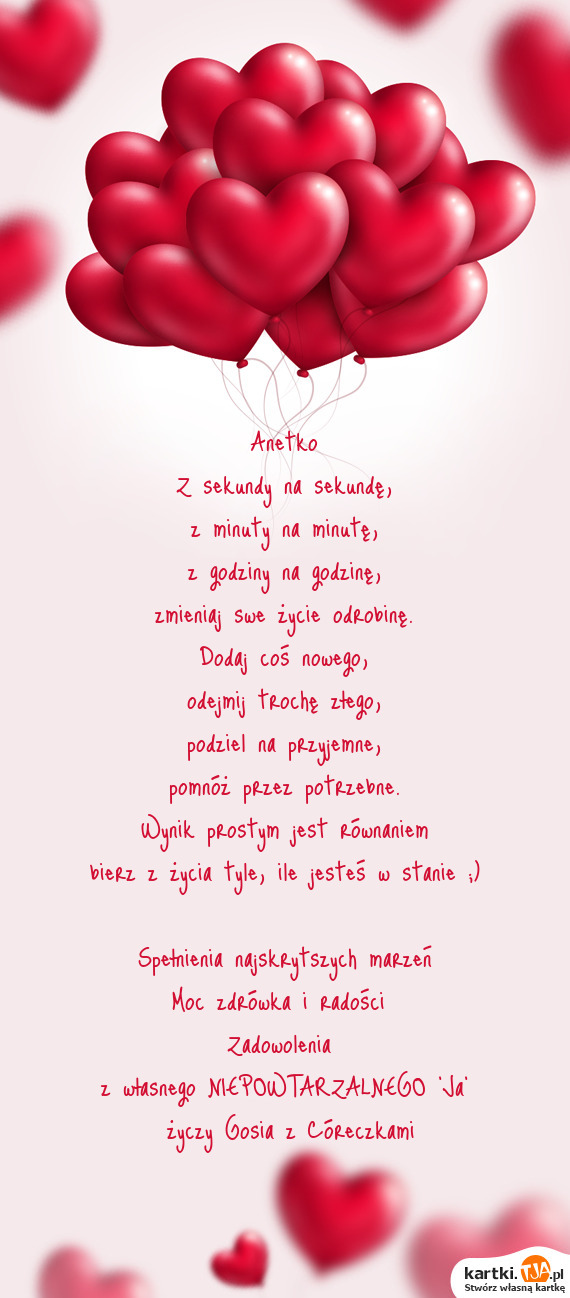 Anetko
Z sekundy na sekundę,
z minuty na minutę,
z godziny na godzinę,
zmieniaj swe życie odrobinę.
Dodaj coś nowego,
odejmij trochę złego,
podziel na przyjemne,
pomnóż przez potrzebne.
Wynik prostym jest równaniem
bierz z życia tyle, ile jesteś w stanie ;)
Spełnienia najskrytszych marzeń
Moc zdrówka i radości
Zadowolenia
z własnego NIEPOWTARZALNEGO 'Ja'
życzy Gosia z Córeczkami
kartki.TJA.pl
Stwórz własną kartkę